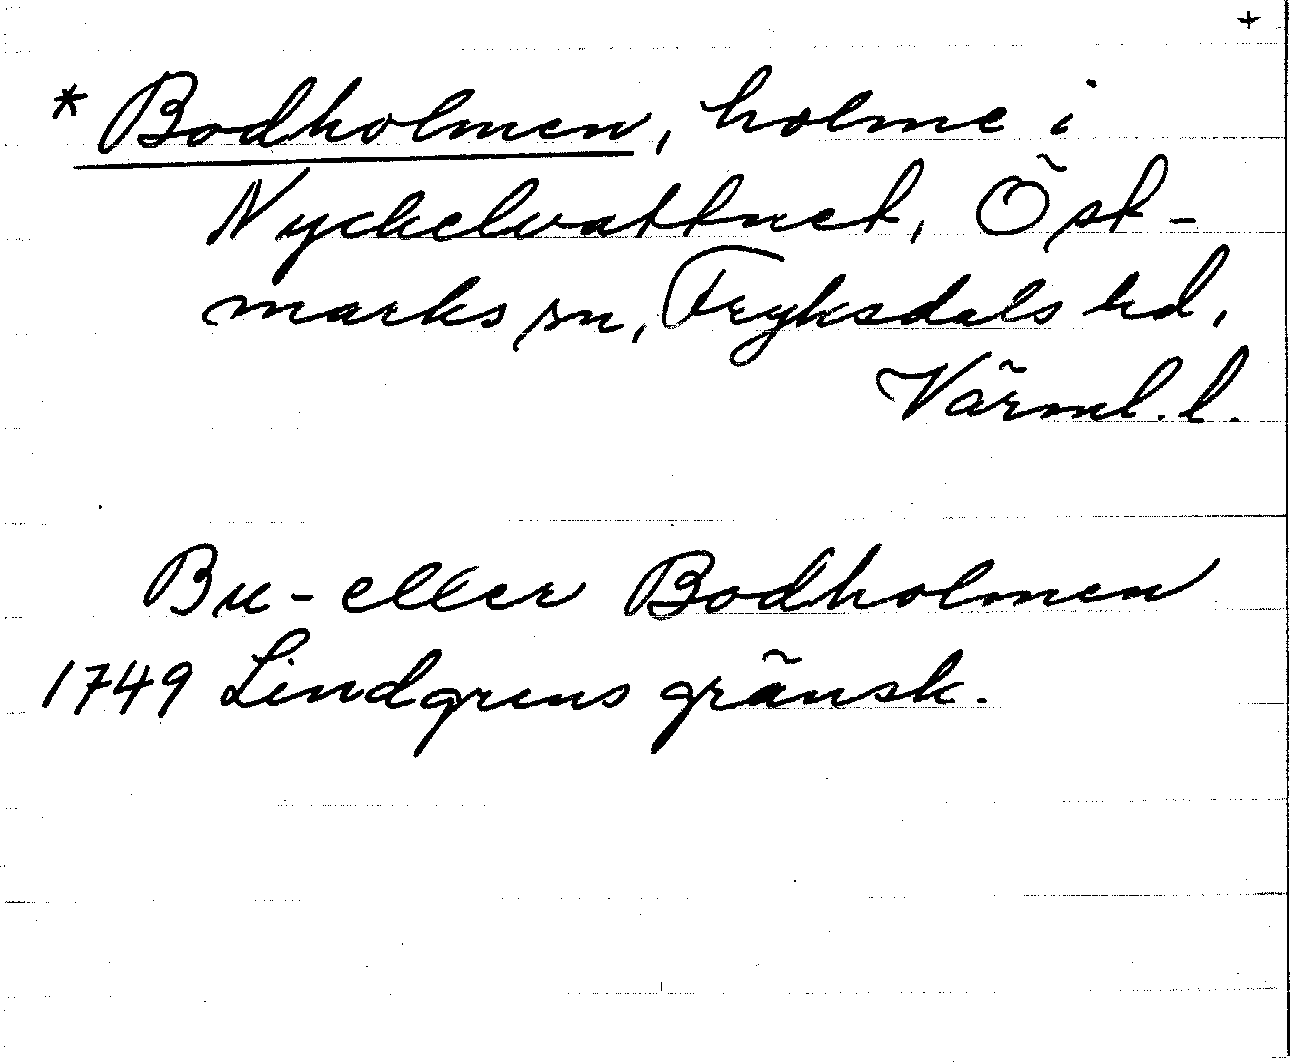 +
* Bodholmen, holme i
Nyckelvattnet, Öst-
marks sn, Fryksdals hd,
Värml. l.
Bu- eller Bodholmen
1749 Lindgrens gränsk.